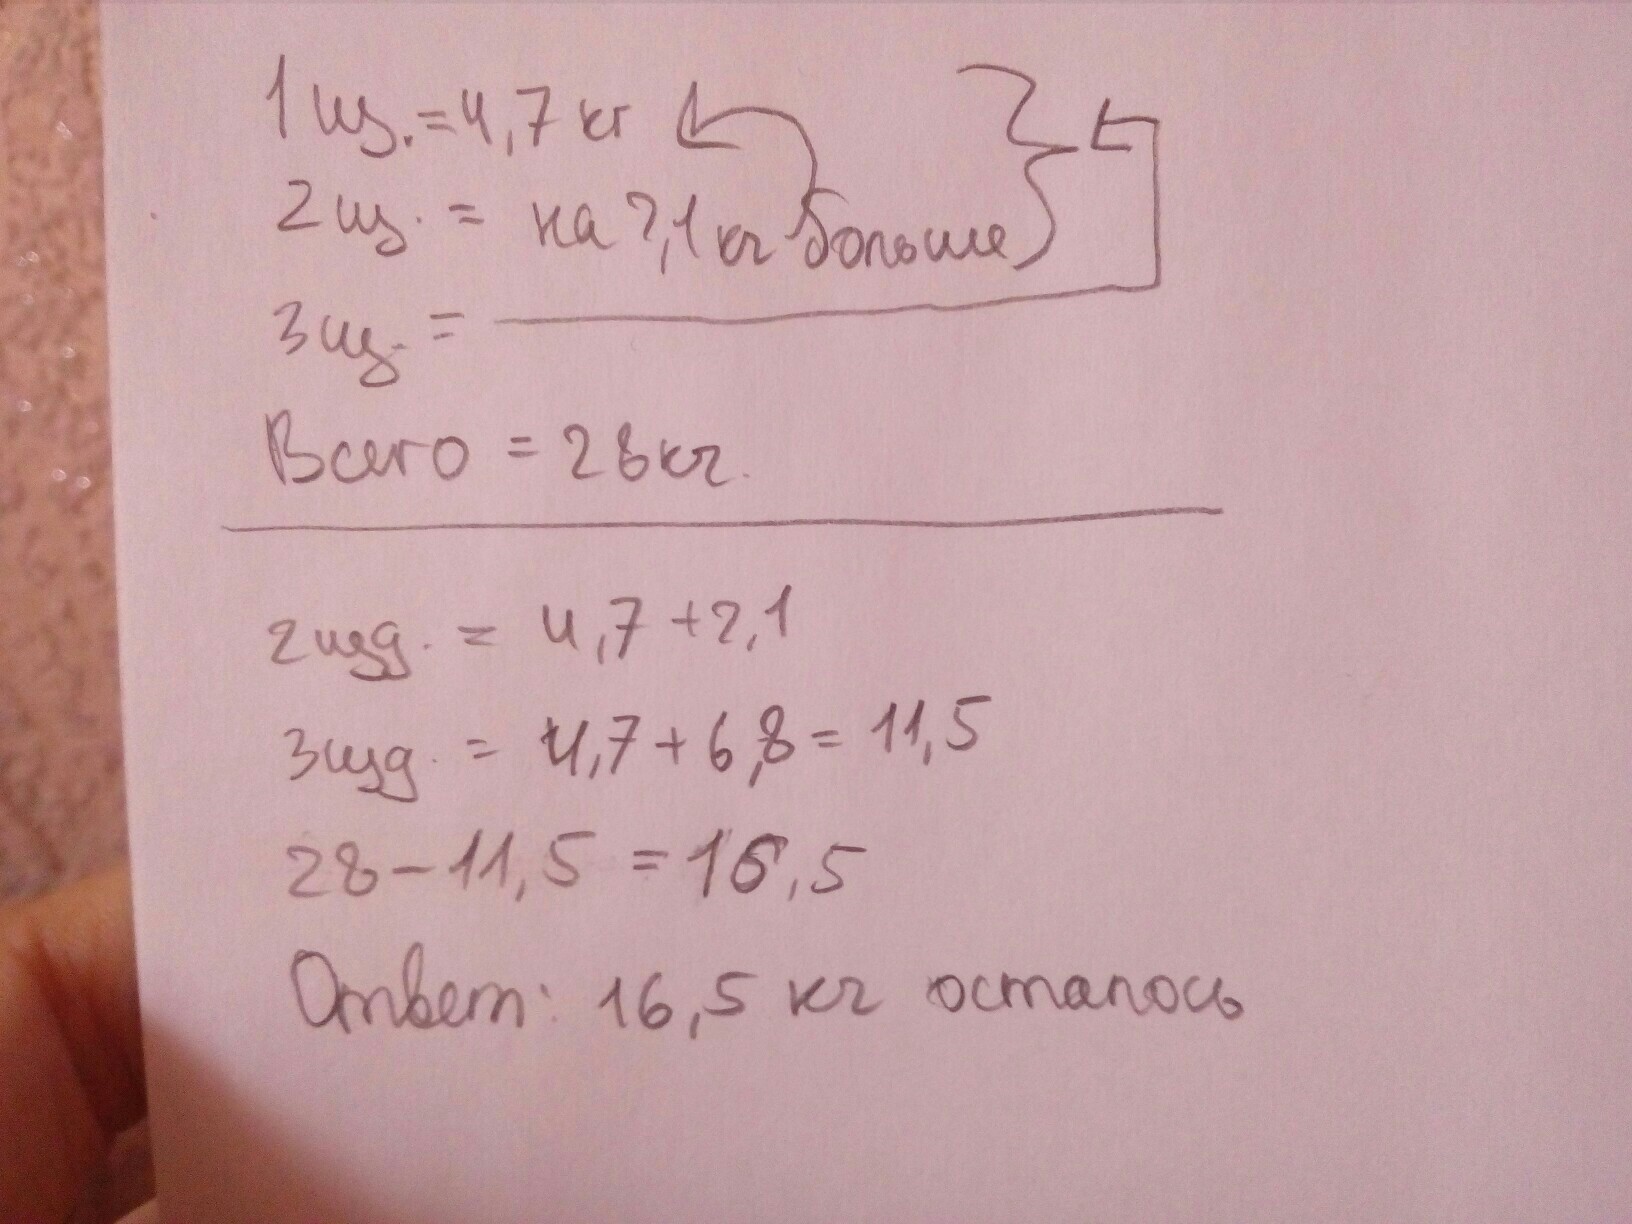 1 из. = 4,7 кг
2 из. = на 2,1 кг больше
3 из. =
Всего = 28 кг.
2 изд. = 4,7 + 2,1
3 изд. = 4,7 + 6,8 = 11,5
28 - 11,5 = 16,5
Ответ: 16,5 кг осталось